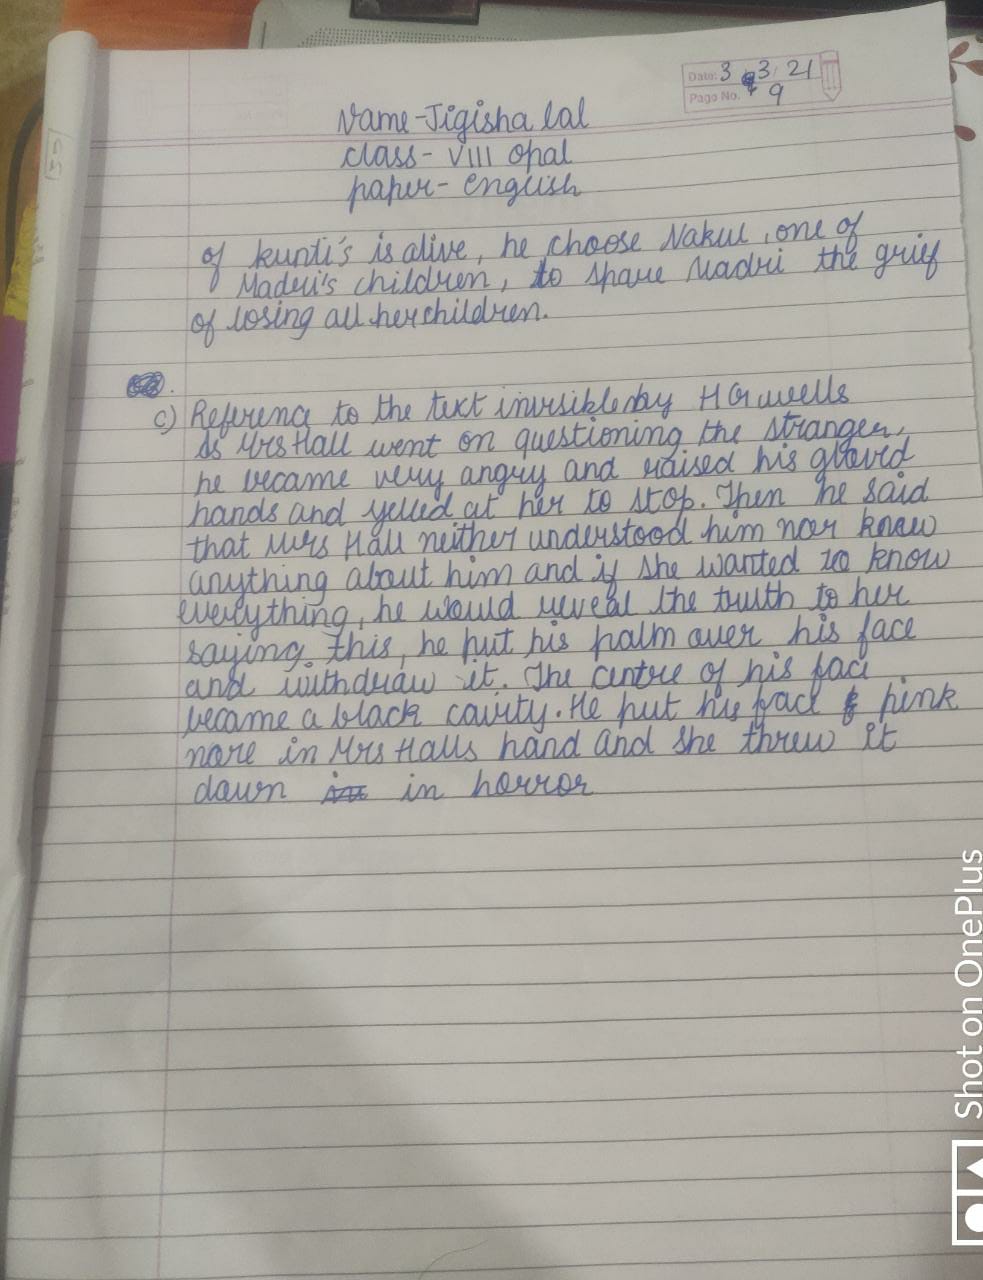 Date: 3 3 21
Page No. 9
Name - Jigisha lal
class - VIII opal
paper - english
of kunti's is alive, he choose Nakul, one of
Madri's children, to spare Madri the grief
of losing all her children.
c) Reference to the text invisible by H G wells
As Mrs Hall went on questioning the stranger,
he became very angry and raised his gloved
hands and yelled at her to stop. Then he said
that Mrs Hall neither understood him nor knew
anything about him and if she wanted to know
everything, he would reveal the truth to her
saying. this, he put his palm over his face
and withdraw it. The centre of his face
became a black cavity. He put his face pink
nose in Mrs Halls hand and she threw it
down in horror
Shot on OnePlus